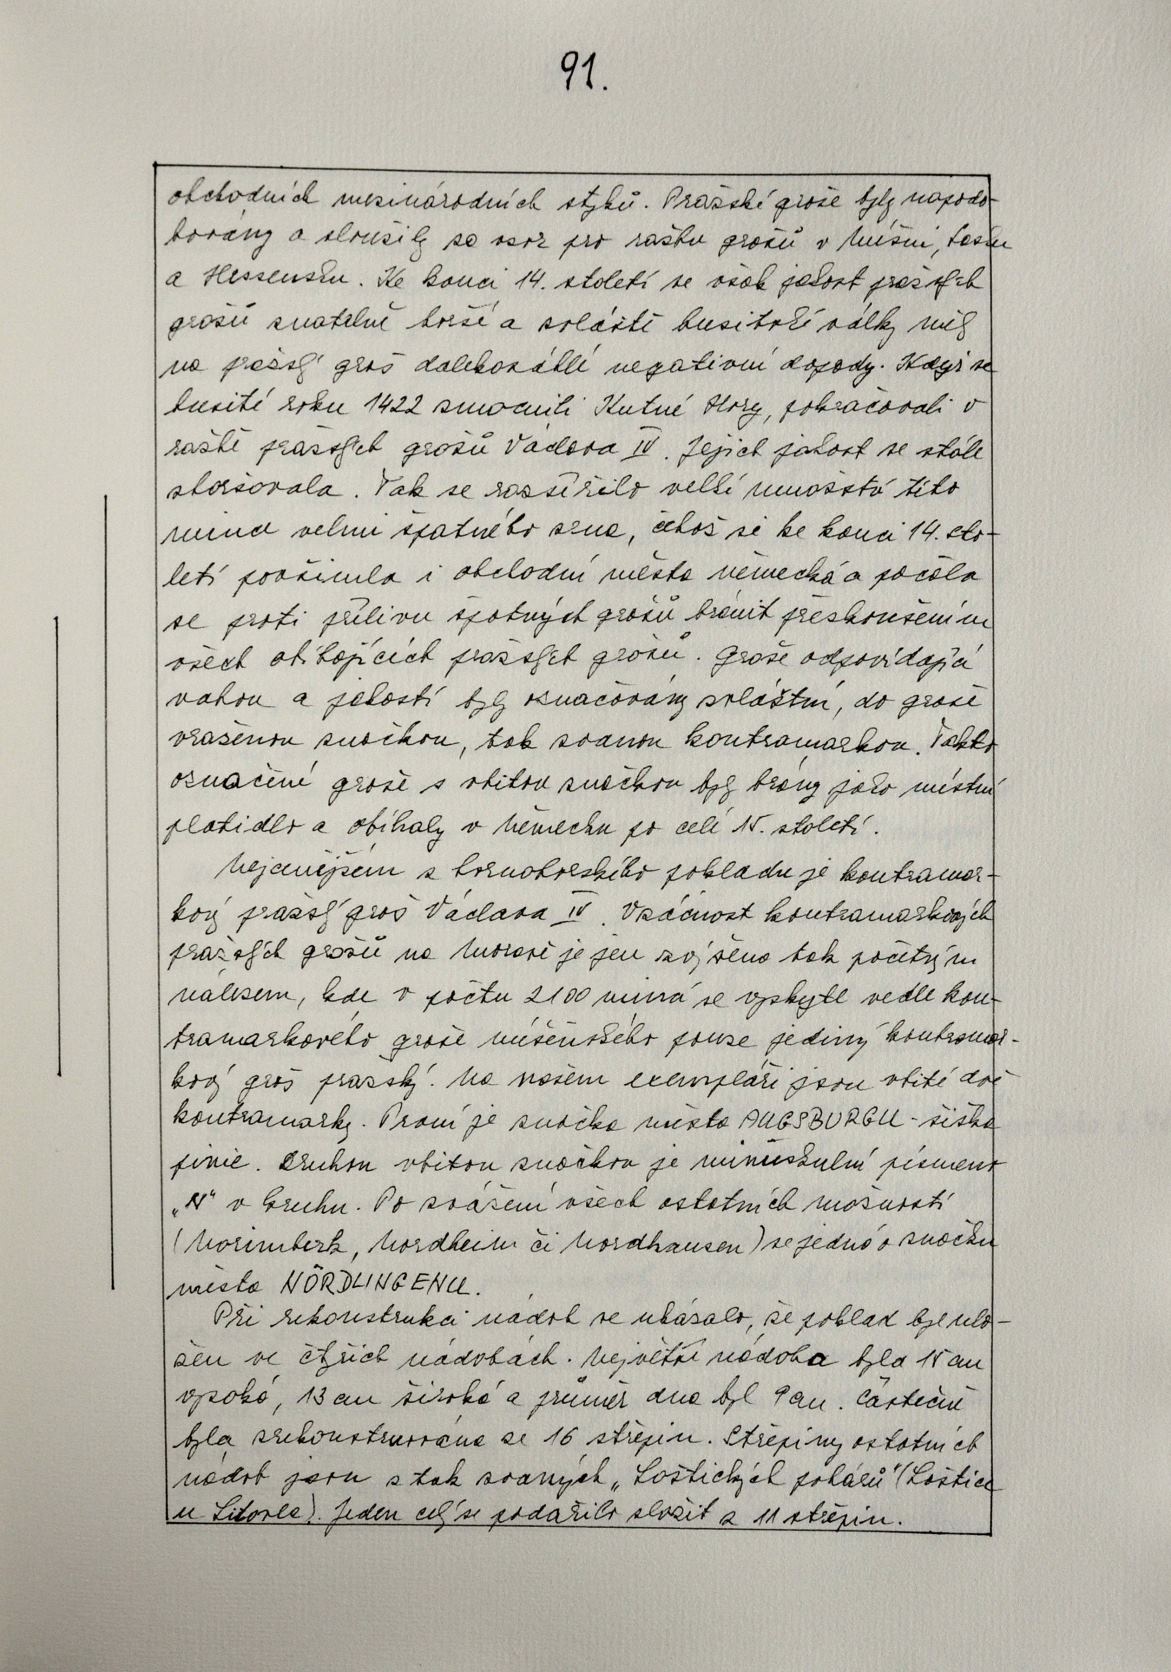 91.
obchodních mezinárodních styků. Pražské groše byly napodo-
bovány a sloužily za vzor pro ražbu grošů v Míšni,
a Hessensku. Ke konci 14. století se však jakost pražských
grošů znatelně horší a zvláště husitské války měly
na pražský groš dalekosáhlé negativní dopady. Když se
husité roku 1422 zmocnili Kutné Hory, pokračovali v
ražbě pražských grošů Václava IV. Jejich jakost se stále
zhoršovala. Tak se rozšířilo velké množství této
mince velmi špatného zrna, čehož si ke konci 14. sto-
letí povšimla i obchodní města německá a počala
se proti přílivu špatných grošů bránit přezkoušením
všech obíhajících pražských grošů. Groše odpovídající
vahou a jakostí byly označovány zvláštní, do groše
vraženou značkou, tak zvanou kontramarkou. Takto
označené groše s vbitou značkou byly brány jako místní
platidlo a obíhaly v Německu po celé 15. století.
Nejcennějším z hornohorského pokladu je kontramar-
kový pražský groš Václava IV. Vzácnost kontramarkových
pražských grošů na Moravě je jen zvýšena tak početným
nálezem, kde v počtu 2100 mincí se vyskytl vedle kon-
tramarkového groše míšeňského pouze jediný kontramar-
kový groš pražský. Na našem exempláři jsou vbité dvě
kontramarky. První je značka města AUGSBURGU - šiška
pinie. Druhou vbitou značkou je minuskulní písmeno
„N" v kruhu. Po zvážení všech ostatních možností
(Norimberk, Nordheim či Nordhausen) se jedná o značku
města NÖRDLINGENU.
Při rekonstrukci nádob se ukázalo, že poklad byl ulo-
žen ve čtyřech nádobách. Největší nádoba byla 15 cm
vysoká, 13 cm široká a průměr dna byl 9 cm. Částečně
byla zrekonstruována ze 16 střepin. Střepiny ostatních
nádob jsou z tak zvaných „Loštických pohárů" (Loštice
u Litovle). Jeden celý se podařilo složit z 11 střepin.